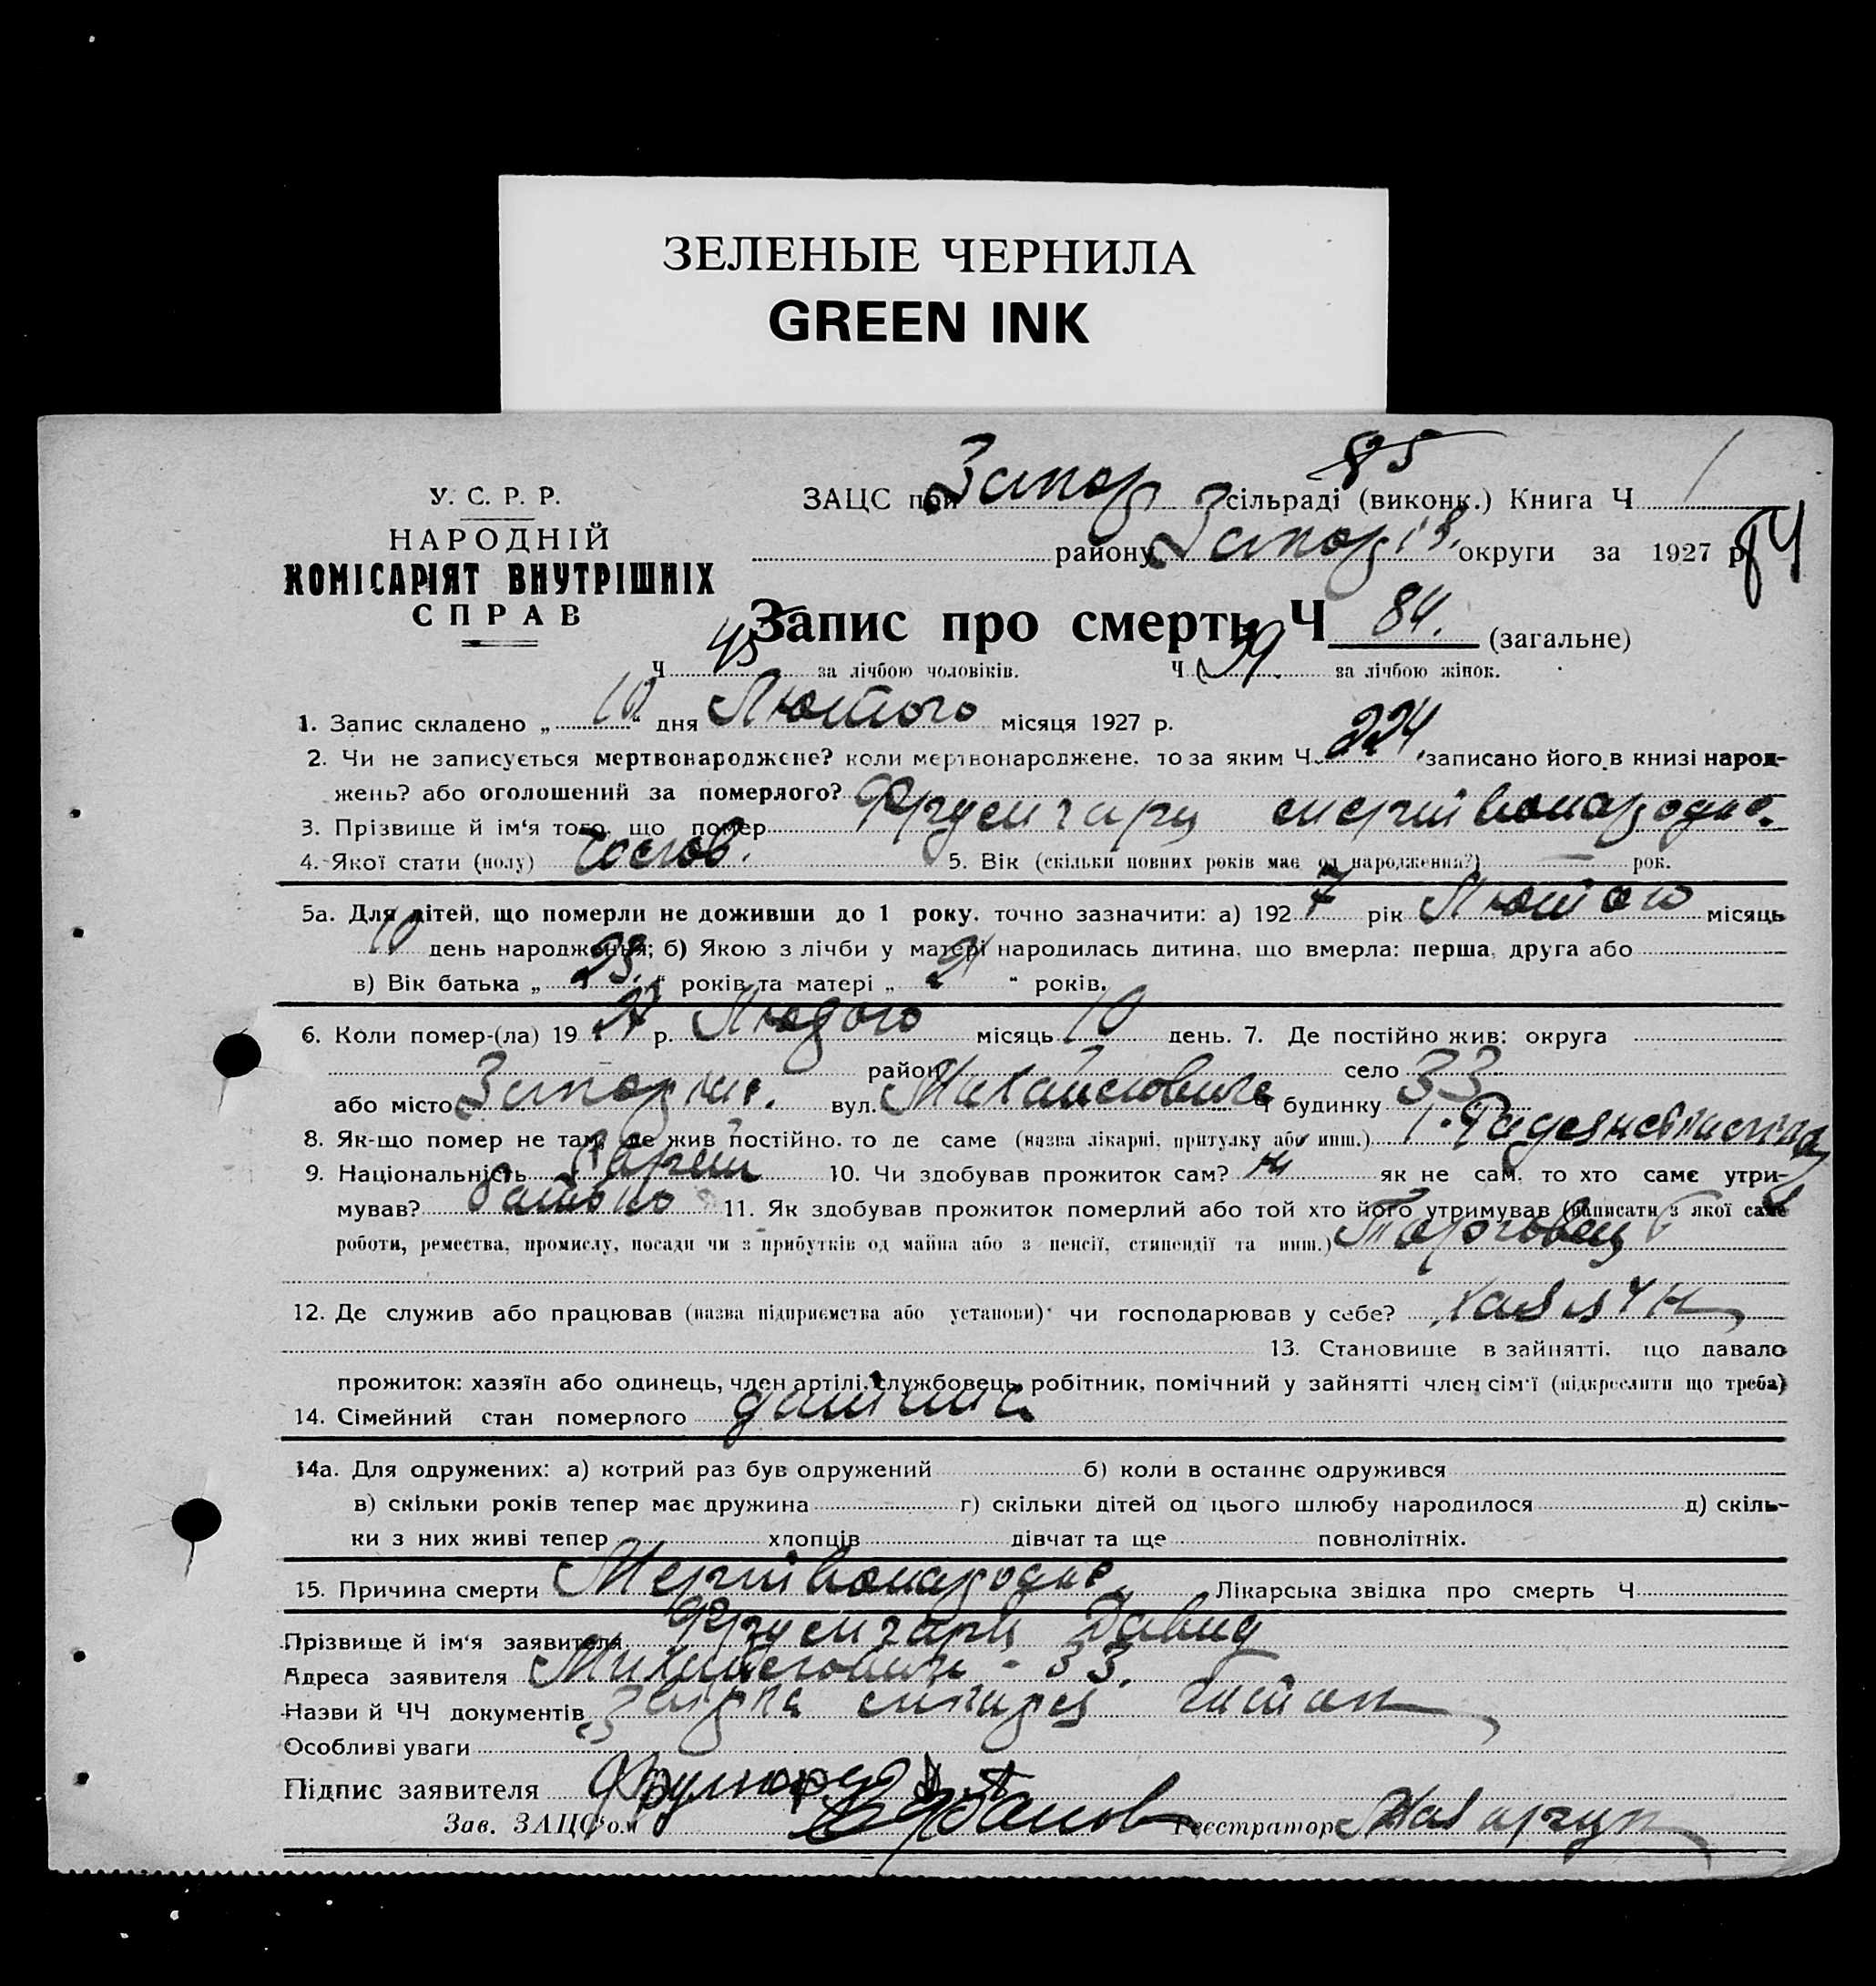 ЗЕЛЕНЫЕ ЧЕРНИЛА
GREEN INK
85
У. С. Р. Р.
НАРОДНІЙ
КОМІСАРІЯТ ВНУТРІШНІХ
СПРАВ
ЗАЦС при Запор сільраді (виконк.) Книга Ч 1
району Запоріз. округи за 1927 р.
84
Запис про смерть Ч 84. (загальне)
Ч 45 за лічбою чоловіків. Ч 39 за лічбою жінок.
1. Запис складено „ 10 “ дня Лютого місяця 1927 р.
2. Чи не записується мертвонароджене? коли мертвонароджене, то за яким Ч 224 записано його в книзі народ-
жень? або оголошений за померлого?
3. Прізвище й ім'я того, що помер Фрумгарц мертвонародне.
4. Якої стати (полу) Чолов. 5. Вік (скільки повних років має од народження?) — рок.
5а. Для дітей, що померли не доживши до 1 року, точно зазначити: а) 192 7 рік Лютого місяць
10 день народження; б) Якою з лічби у матері народилась дитина, що вмерла: перша, друга або
в) Вік батька „ 23. “ років та матері „ 21 “ років.
6. Коли помер-(ла) 19 27 р. Лютого місяць 10 день. 7. Де постійно жив: округа
район село
або місто Запоріжже. вул. Михайловича Ч будинку 33
8. Як-що помер не там, де жив постійно, то де саме (назва лікарні, притулку або инш.) 1.
9. Національність Євреи 10. Чи здобував прожиток сам? ні як не сам, то хто саме утри-
мував? батько 11. Як здобував прожиток померлий або той хто його утримував (написати з якої саме
роботи, ремества, промислу, посади чи з прибутків од майна або з пенсії, стипендії та инш.) Торговець
12. Де служив або працював (назва підприємства або установи) чи господарював у себе?
13. Становище в зайнятті, що давало
прожиток: хазяїн або одинець, член артілі, службовець, робітник, помічний у зайнятті член сім'ї (підкреслити що треба)
14. Сімейний стан померлого дитина
14а. Для одружених: а) котрий раз був одружений б) коли в останнє одружився
в) скільки років тепер має дружина г) скільки дітей од цього шлюбу народилося д) скіль-
ки з них живі тепер хлопців дівчат та ще повнолітніх.
15. Причина смерти Мертвонародне. Лікарська звідка про смерть Ч
Прізвище й ім'я заявителя Фрумгарц Давид
Адреса заявителя Михайловича - 33.
Назви й ЧЧ документів
Особливі уваги
Підпис заявителя
Зав. ЗАЦС'ом Реєстратор